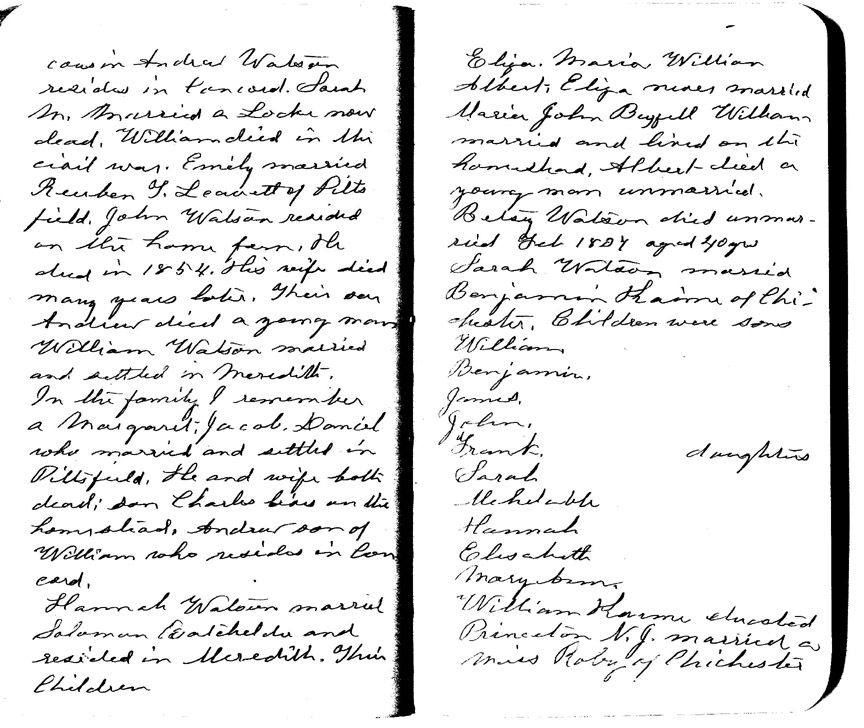 cousin Andrew Watson
resides in Concord. Sarah
M. Married a Locke now
dead. William died in the
civil war. Emily married
Reuben T. Leavett of Pitts
field. John Watson resided
on the home farm. He
died in 1854. His wife died
many years later. Their son
Andrew died a young man
William Watson married
and settled in Meredith.
In the family I remember
a Margaret, Jacob. Daniel
who married and settled in
Pittsfield. He and wife both
dead; son Charles lives on the
homestead. Andrew son of
William who resides in Con
cord.
Hannah Watson married
Soloman Batchelder and
resided in Meredith. Their
Children
Eliza. Maria William
Albert; Eliza never married
Maria John William
married and lived on the
homestead, Albert died a
young man unmarried.
Betsy Watson died unmar-
ried Feb 1837 aged 40 yrs
Sarah Watson married
Benjamin Kaime of Chi-
chester. Children were sons
William
Benjamin.
James.
John.
Frank. daughters
Sarah
Mehitable
Hannah
Elisabeth
Mary Ann.
William Kaime educated
Princeton N.J. married a
Miss Roby of Chichester